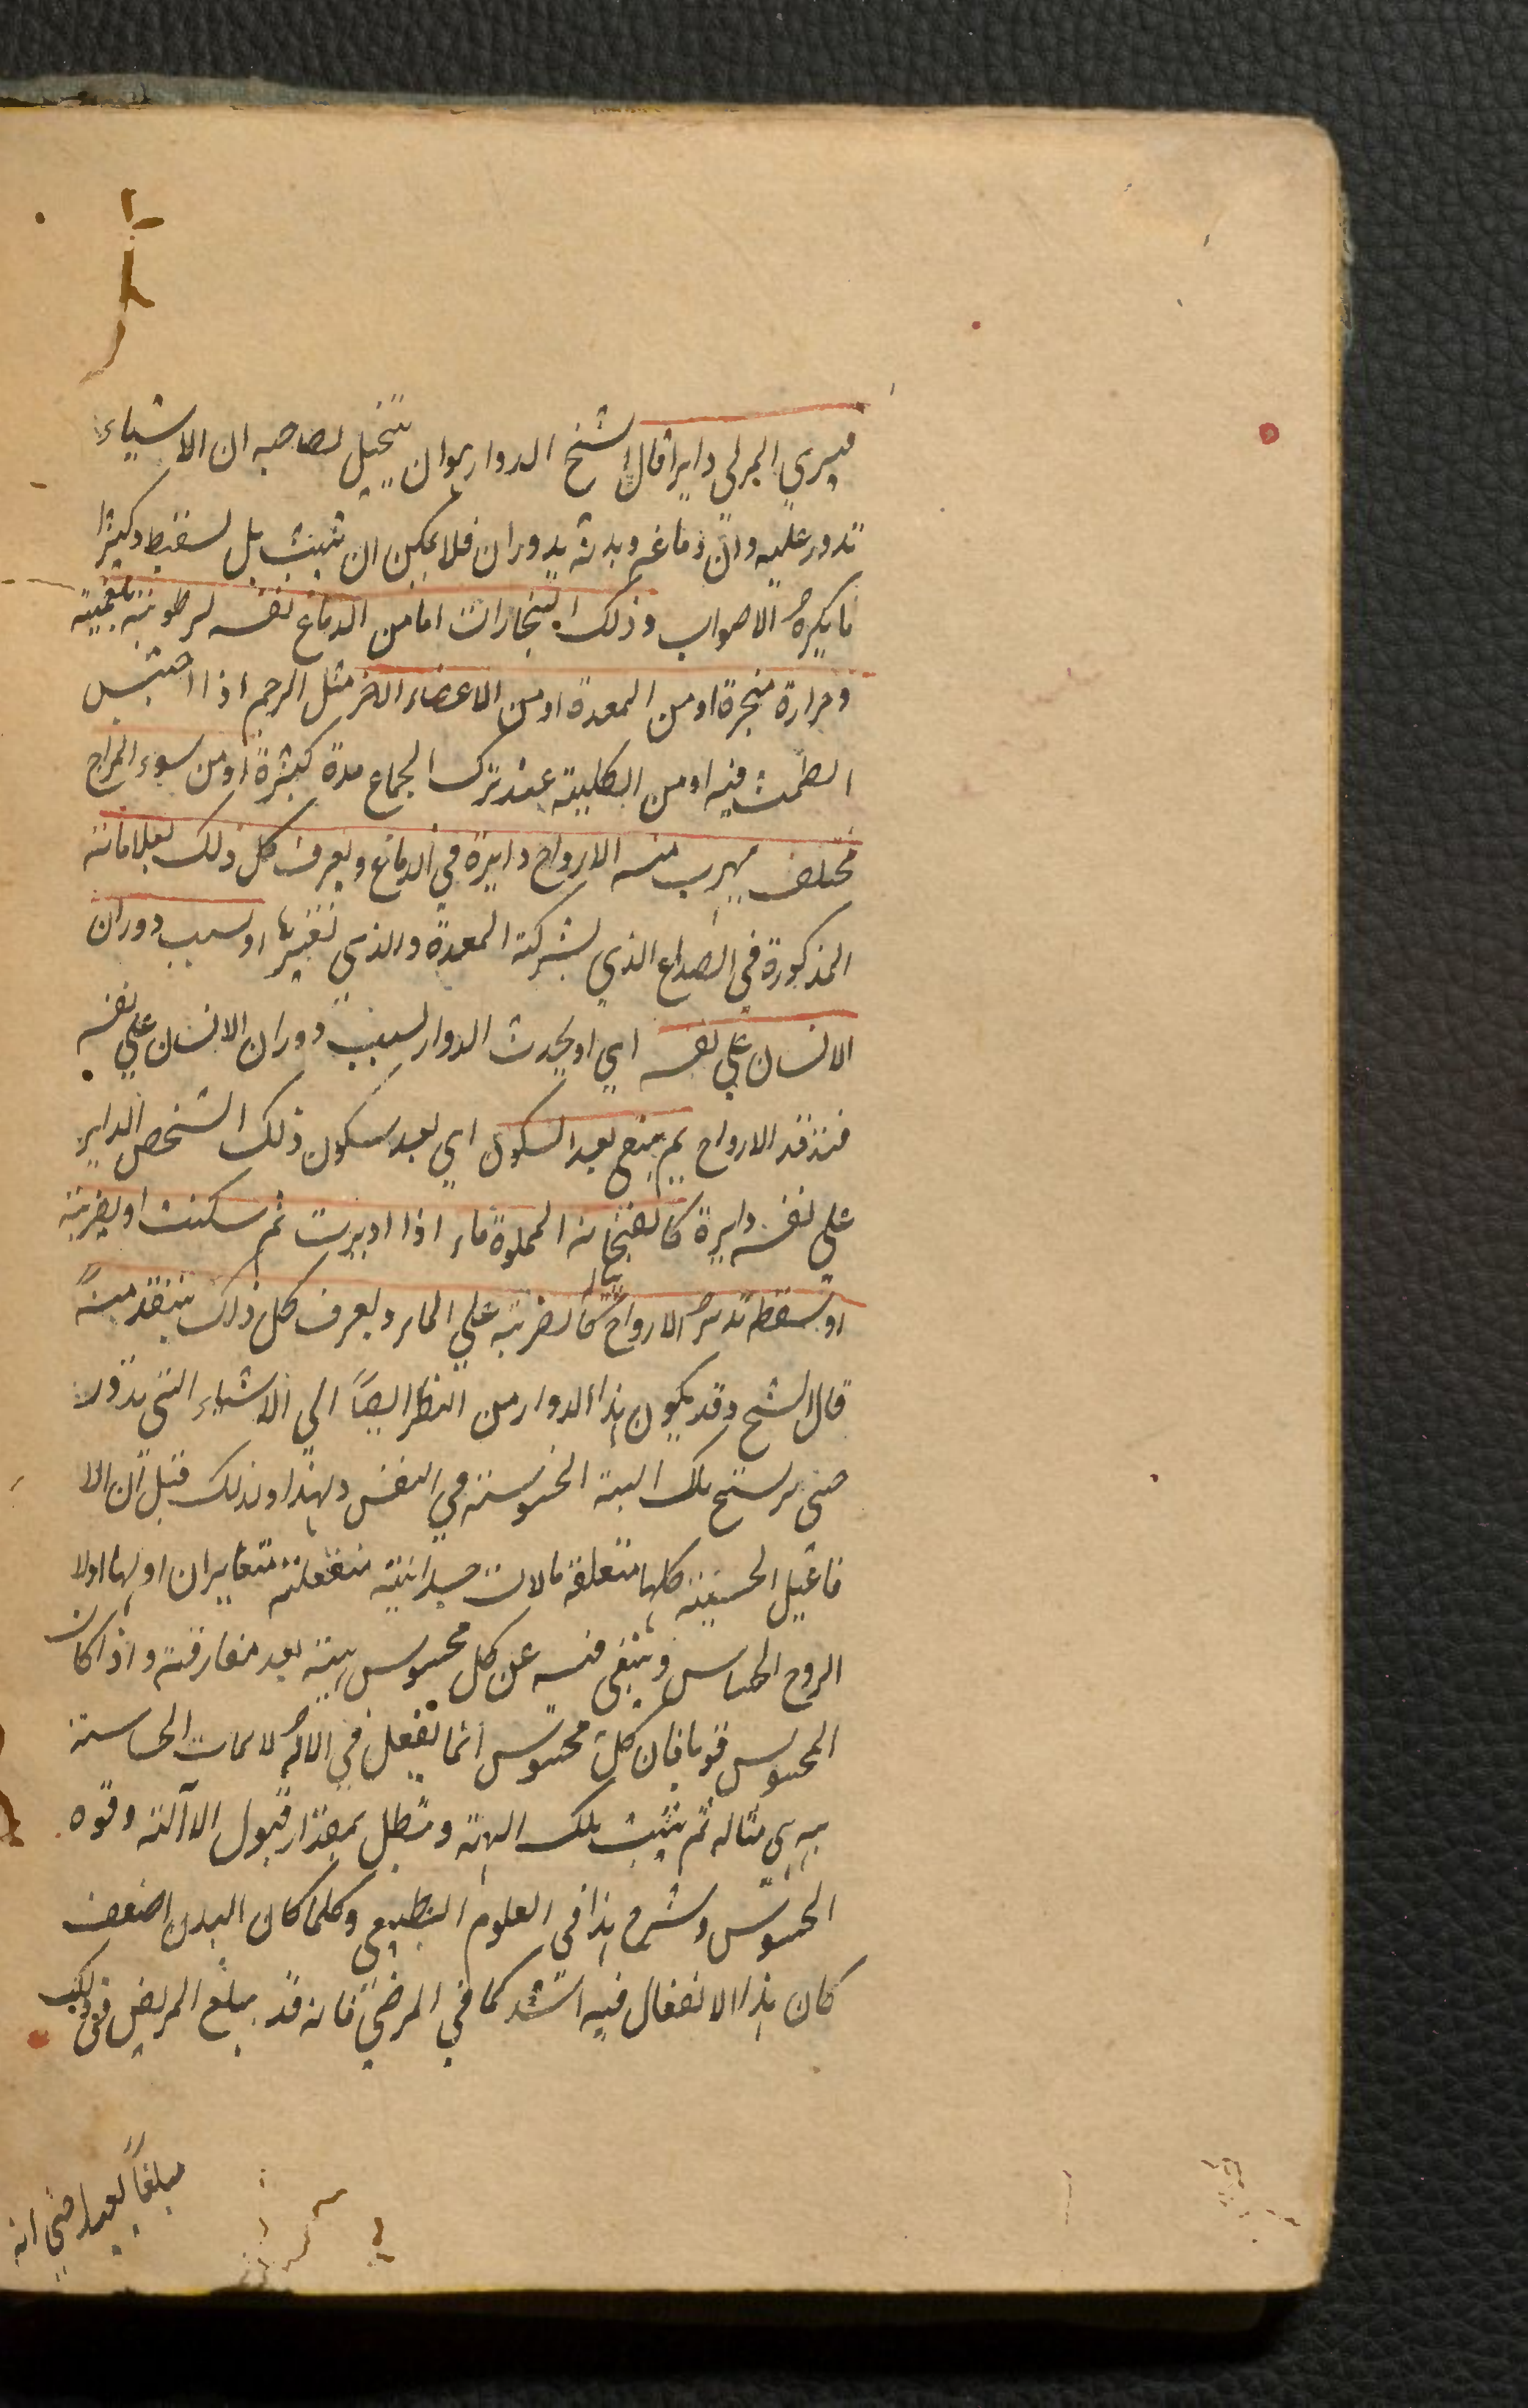 فيرى المرئي دايرا قال الشيخ الدوار هو ان يتخيل لصاحبه ان الاشياء
تدور عليه وان دماغه وبدنه يدوران فلا يمكن ان يثبت بل يسقط وكثيرا
ما يكره الاصوات وذلك البخارات اما من الدماغ نفسه لرطوبة بلغمية
وحرارة مبخرة او من المعدة او من الاعضاء الاخر مثل الرحم اذا احتبس
الطمث فيه او من الكلية عند ترك الجماع مدة كثيرة او من سوء المزاج
مختلف يهرب منه الارواح دايرة في الدماغ ويعرف كل ذلك بعلاماته
المذكورة في الصداع الذي بشركة المعدة والذي بغيرها او بسبب دوران
الانسان على نفسه اي او يحدث الدوار بسبب دوران الانسان على نفسه
فتدور الارواح ثم يبقى بعد السكون اي بعد سكون ذلك الشخص الداير
على نفسه دايرة كالفنجانه المملوة ماء اذا اديرت ثم سكنت او بضربة
او سقطة تدير الارواح كالضربة على الماء ويعرف كل ذلك بتقدمه
قال الشيخ وقد يكون هذا الدوار من النظر ايضا الى الاشياء التي تدور
حتى يرسخ تلك الهيئة المحسوسة في النفس ولهذا وذلك قيل ان الا
فاعيل الحسية كلها متعلقة بالات جسدانية منفعلة اولها اولا
الروح الحساس ويبقى فيه عن كل محسوس هيئة بعد مفارقته واذا كان
المحسوس قويا فان كل محسوس انما يفعل في الالة الحاسة
هيئة هي مثاله ثم يثبت تلك الهيئة وتبطل بمقدار قبول الآلة وقوة
المحسوس وشرح هذا في العلوم الطبيعي وكلما كان البدن اضعف
كان هذا الانفعال فيه اشد كما في المرضى فانه قد يبلغ المريض في ذلك
مبلغا بعيدا حتى انه